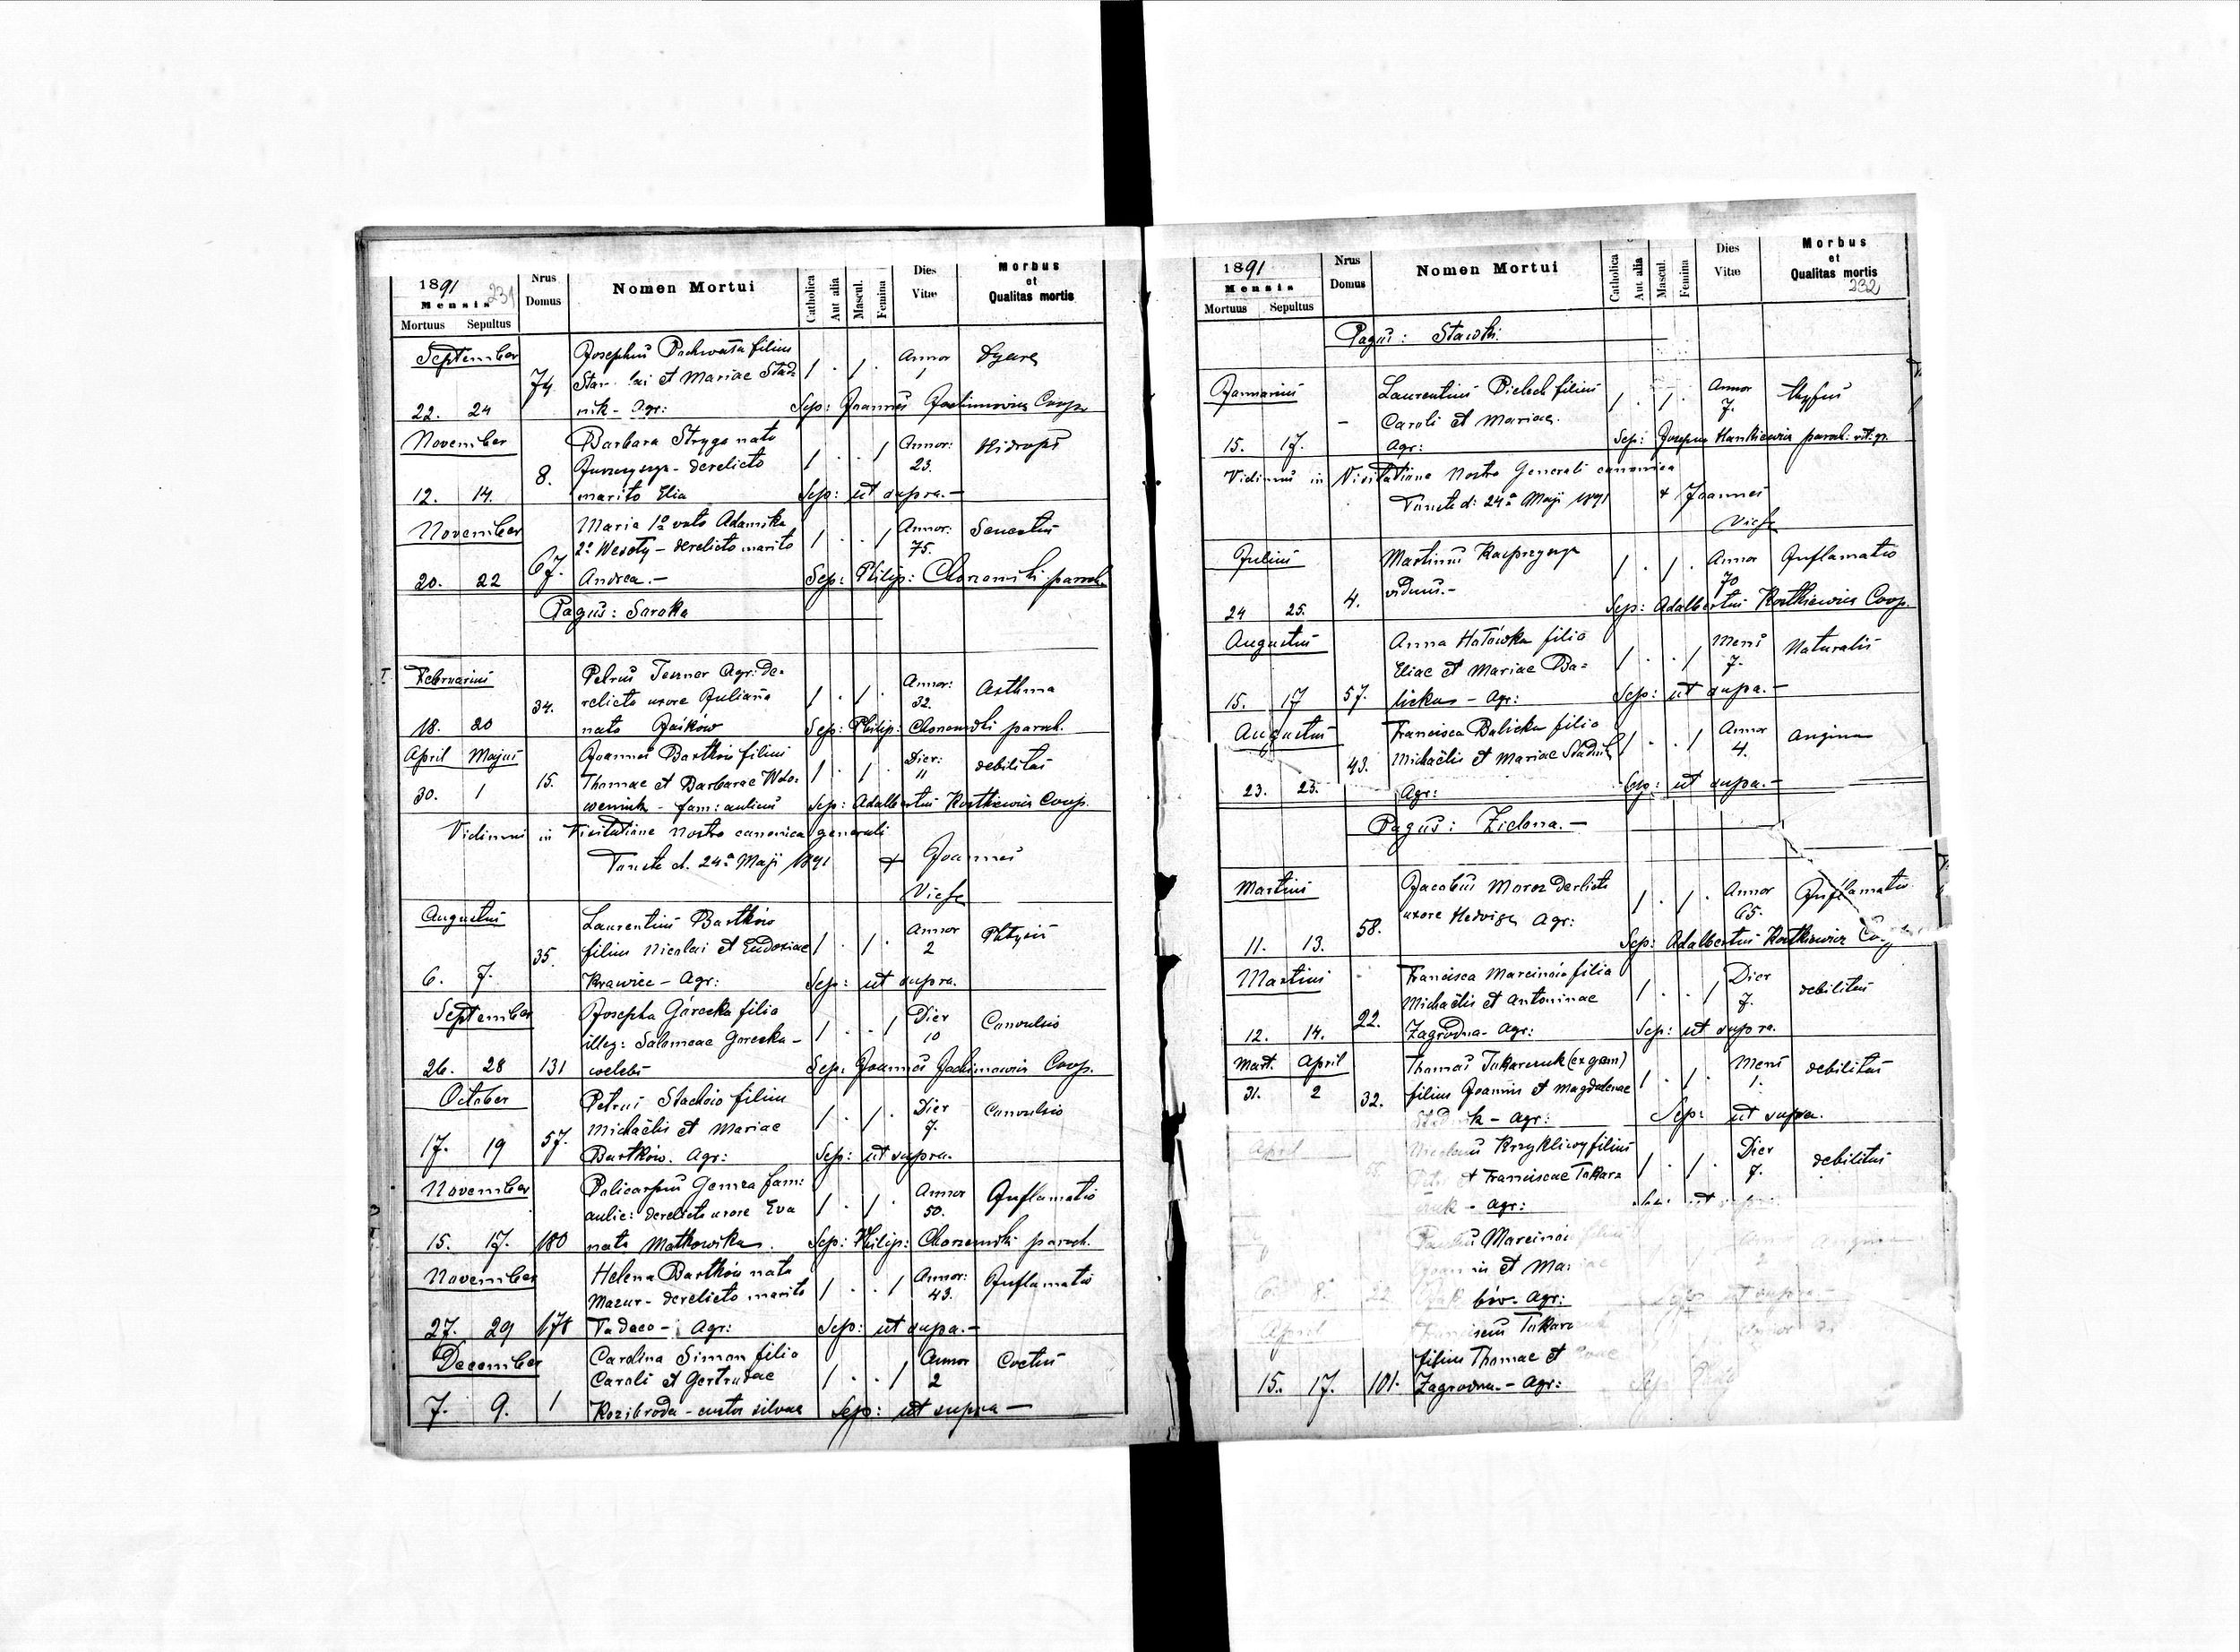 1891 231
Mensis
Mortuus Sepultus
Nrus Domus
Nomen Mortui
Catholica
Aut alia
Mascul.
Femina
Dies Vitæ
Morbus et Qualitas mortis
September
Josephus filius
et Mariae Stad=
nik - Agr:
74. 1 . 1 . Annor 1
22. 24 Sep: Joannes Jachimowicz Coop.
November
Barbara Stryga nata
derelicto
marito Elia
8. 1 . . 1 Annor: 23. Hidrops
12. 14. Sep: ut supra.-
November
Maria 1º voto Adamska
2º Wesoły - derelicto marito
Andrea.-
67. 1 . . 1 Annor: 75. Senectus
20. 22 Sep: Philip: Chorzemski paroch.
Pagus: Saroka
Februarius
Petrus Agr: de=
relicta uxore Juliana
nata
34. 1 . 1 . Annor: 32. Asthma
18. 20 Sep: Philip: Chorzemski paroch.
April Majus
Joannes Bartków filius
Thomae et Barbarae Wdo=
- fam: aulicus
15. 1 . 1 . Dier: 11 debilitas
30. 1 Sep: Adalbertus Kostkiewicz Coop.
Vidimus in Visitatione Nostra canonica generali
Touste d. 24ª Maji 1891 + Joannes
Augustus
Laurentius Bartków
filius Nicolai et Eudoxiae
Krawiec - Agr:
35. 1 . 1 . Annor 2 Phtysis
6. 7. Sep: ut supra.
September
Josepha Górecka filia
illeg: Salomeae Górecka -
131 1 . . 1 Dier 10 Convulsio
26. 28 Sep: Joannes Jachimowicz Coop.
October
Petrus Stachów filius
Michaëlis et Mariae
Bartków. Agr:
57. 1 . 1 . Dier 7. Convulsio
17. 19 Sep: ut supra.
November
Policarpus Gemza fam:
aulic: derelicta uxore Eva
nata Matkowska.
180 1 . 1 . Annor 50. Inflamatio
15. 17. Sep: Philip: Chorzemski paroch.
November
Helena Bartków nata
Mazur - derelicto marito
Tadaeo - Agr:
178 1 . . 1 Annor: 43. Inflamatio
27. 29 Sep: ut supra.-
December
Carolina Simon filia
Caroli et Gertrudae
Kozibroda - custos silvae
1 1 . . 1 Annor 2
7. 9. Sep: ut supra -
1891
Mensis
Mortuus Sepultus
Nrus Domus
Nomen Mortui
Catholica
Aut alia
Mascul.
Femina
Dies Vitæ
Morbus et Qualitas mortis
232
Pagus: Stawki.
Januarius
Laurentius Pielech filius
Caroli et Mariae.
Agr:
- 1 . 1 . Annor 7. thyfus
15. 17. Sep: Josephus Hankiewicz paroch: rit. gr.
Vidimus in Visitatione Nostra Generali canonica
Touste d: 24ª Maji 1891 + Joannes
Julius
Martinus Kacprzyszyn
viduus.-
4. 1 . 1 . Annor 70 Inflamatio
24 25. Sep: Adalbertus Kostkiewicz Coop.
Augustus
Anna Hałówka filia
Eliae et Mariae Ba=
licka - Agr:
57. 1 . . 1 Mens 7. Naturalis
15. 17 Sep: ut supra.-
Augustus
Francisca Balicka filia
Michaëlis et Mariae Stadnik
Agr:
43. 1 . . 1 Annor 4. Angina
23. 25. Sep: ut supra.-
Pagus: Zielona.-
Martius
Jacobus Moroz derlicta
uxore Hedvige Agr:
58. 1 . 1 . Annor 65. Inflamatio
11. 13. Sep: Adalbertus Kostkiewicz
Martius
Francisca Marcinów filia
Michaëlis et Antoninae
Zagrodna - Agr:
22. 1 . . 1 Dier 7. debilitas
12. 14. Sep: ut supra.
Mart. April
Thomas Tokarczuk (ex gem)
filius Joannis et Magdalenae
- Agr:
32. 1 . 1 . Mens 1. debilitas
31. 2 Sep: ut supra.
April
Krzykliwy filius
et Franciscae Tokarz
- Agr:
1 . 1 . Dier 7. debilitas
Marcinów filius
et Mariae
- Agr:
6. 8. 22 Angina
ut supra.-
April
filius Thomae et
Zagrodna.- Agr:
15. 17. 101.